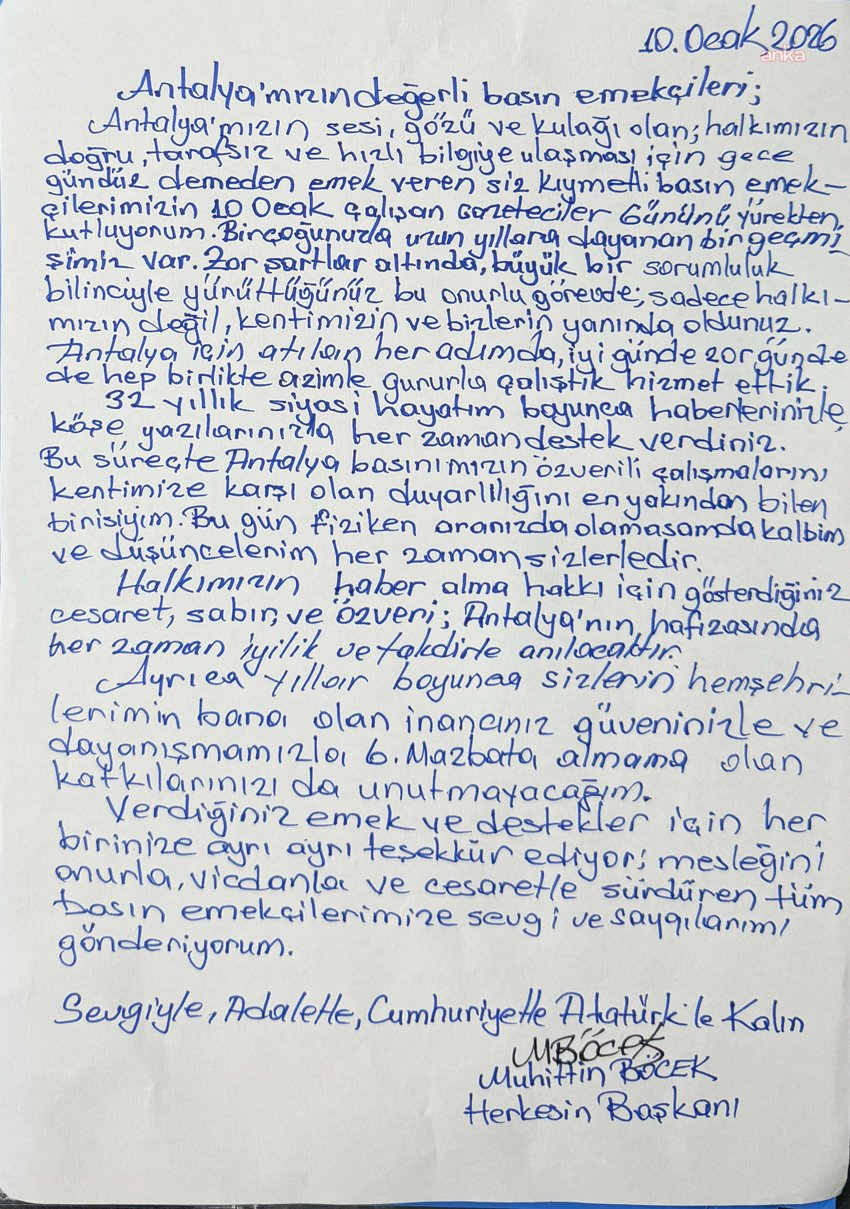 10. Ocak 2026
anka
Antalya'mızın değerli basın emekçileri;
Antalya'mızın sesi, gözü ve kulağı olan; halkımızın
doğru, tarafsız ve hızlı bilgiye ulaşması için gece
gündüz demeden emek veren siz kıymetli basın emek-
çilerimizin 10 Ocak Çalışan Gazeteciler Gününü yürekten
kutluyorum. Birçoğunuzla uzun yıllara dayanan bir geçmi
şimiz var. Zor şartlar altında, büyük bir sorumluluk
bilinciyle yürüttüğünüz bu onurlu görevde; sadece halkı-
mızın değil, kentimizin ve bizlerin yanında oldunuz.
Antalya için atılan her adımda, iyi günde zor günde
de hep birlikte azimle gururla çalıştık hizmet ettik.
32 yıllık siyasi hayatım boyunca haberlerinizle,
köşe yazılarınızla her zaman destek verdiniz.
Bu süreçte Antalya basınımızın özverili çalışmalarını
kentimize karşı olan duyarlılığını en yakından bilen
birisiyim. Bu gün fiziken aranızda olamasamda kalbim
ve düşüncelerim her zaman sizlerledir.
Halkımızın haber alma hakkı için gösterdiğiniz
cesaret, sabır, ve özveri; Antalya'nın, hafızasında
her zaman iyilik ve takdirle anılacaktır.
Ayrıca yıllar boyunca sizlerin hemşehri-
lerimin bana olan inancınız güveninizle ve
dayanışmamızla 6. Mazbata almama olan
katkılarınızı da unutmayacağım.
Verdiğiniz emek ve destekler için her
birinize ayrı ayrı teşekkür ediyor; mesleğini
onurla, vicdanla ve cesaretle sürdüren tüm
basın emekçilerimize sevgi ve saygılarımı
gönderiyorum.
Sevgiyle, Adaletle, Cumhuriyetle Atatürk'le Kalın
MBÖCEK
Muhittin BÖCEK
Herkesin Başkanı